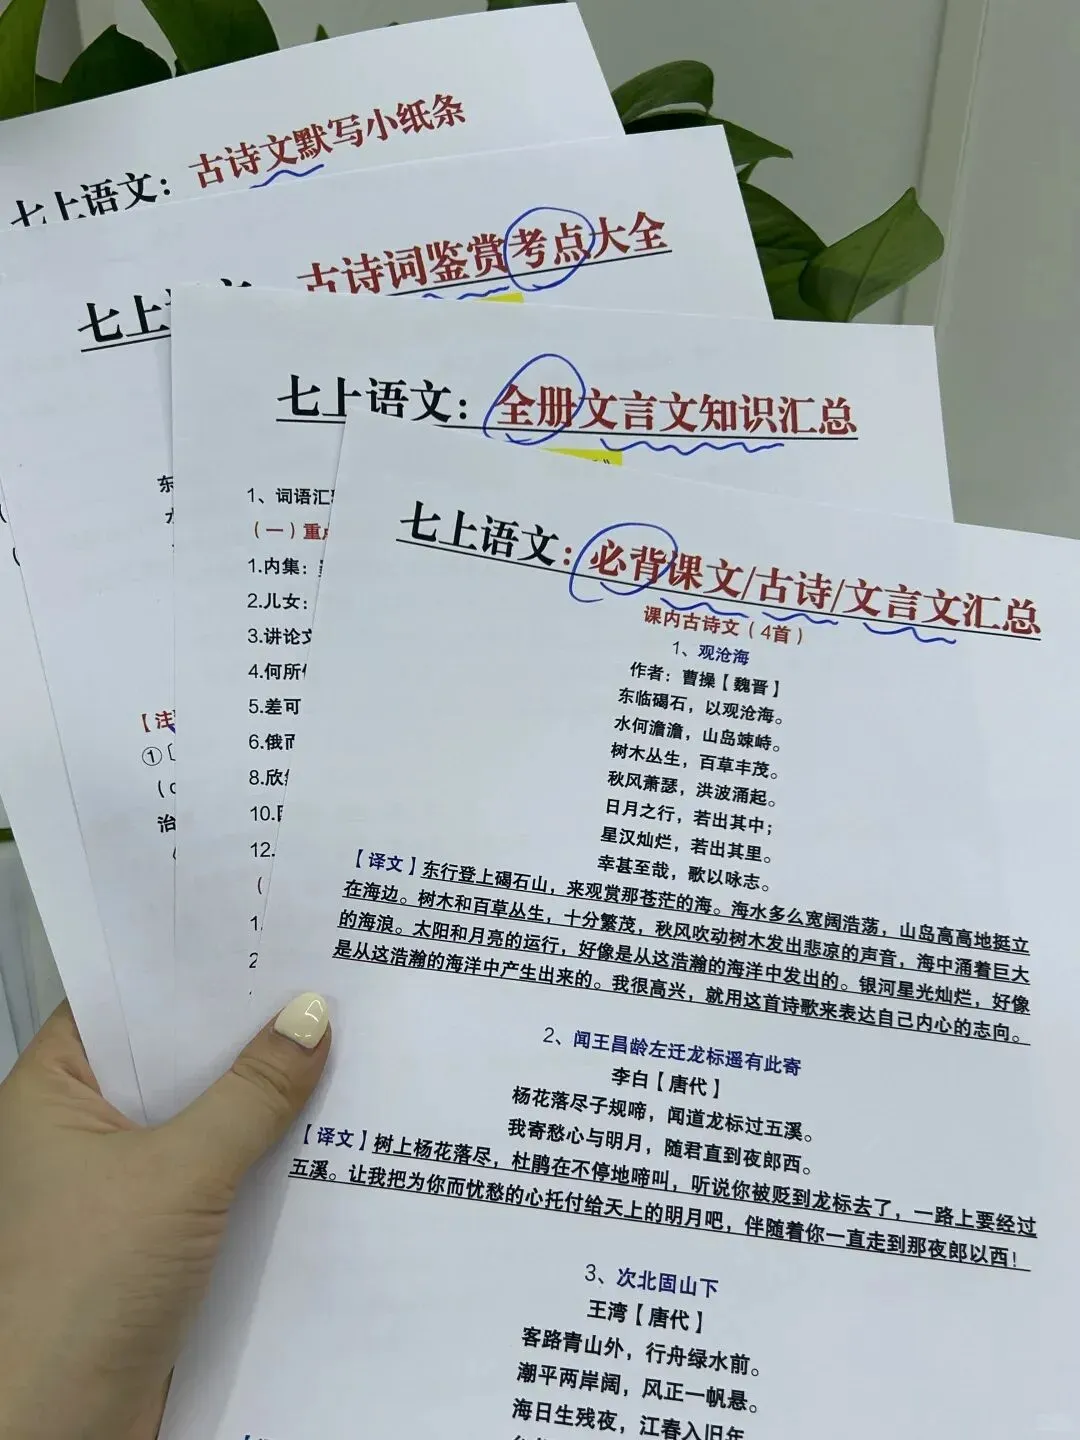 七上语文：古诗文默写小纸条
七上语文：古诗词鉴赏考点大全
七上语文：全册文言文知识汇总
1、词语汇
（一）重点
1.内集：
2.儿女：
3.讲论文
4.何所
5.差可
6.俄而
8.欣
10.
12.
东
【注
①
治
七上语文：必背课文/古诗/文言文汇总
课内古诗文（4首）
1、观沧海
作者：曹操【魏晋】
东临碣石，以观沧海。
水何澹澹，山岛竦峙。
树木丛生，百草丰茂。
秋风萧瑟，洪波涌起。
日月之行，若出其中；
星汉灿烂，若出其里。
幸甚至哉，歌以咏志。
【译文】东行登上碣石山，来观赏那苍茫的海。海水多么宽阔浩荡，山岛高高地挺立
在海边。树木和百草丛生，十分繁茂，秋风吹动树木发出悲凉的声音，海中涌着巨大
的海浪。太阳和月亮的运行，好像是从这浩瀚的海洋中发出的。银河星光灿烂，好像
是从这浩瀚的海洋中产生出来的。我很高兴，就用这首诗歌来表达自己内心的志向。
2、闻王昌龄左迁龙标遥有此寄
李白【唐代】
杨花落尽子规啼，闻道龙标过五溪。
我寄愁心与明月，随君直到夜郎西。
【译文】树上杨花落尽，杜鹃在不停地啼叫，听说你被贬到龙标去了，一路上要经过
五溪。让我把为你而忧愁的心托付给天上的明月吧，伴随着你一直走到那夜郎以西！
3、次北固山下
王湾【唐代】
客路青山外，行舟绿水前。
潮平两岸阔，风正一帆悬。
海日生残夜，江春入旧年